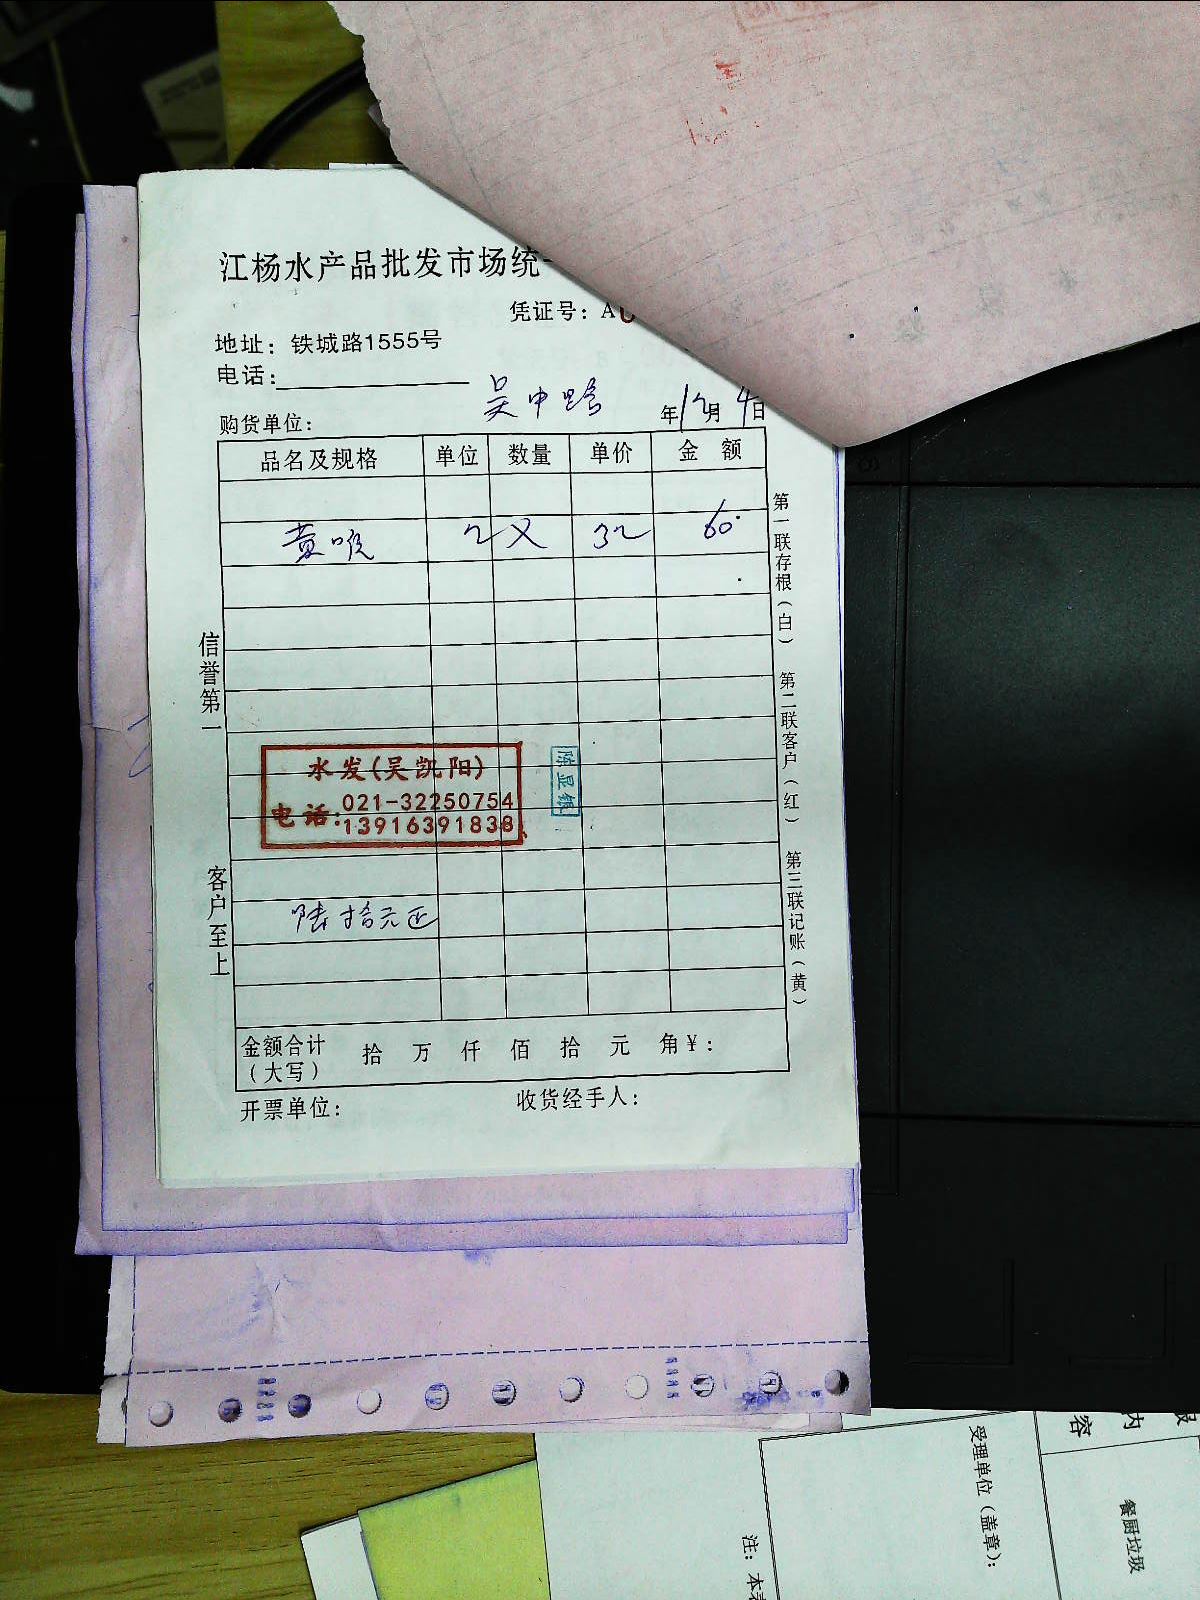 江杨水产品批发市场统一
凭证号：A0
地址：铁城路1555号
电话：
吴中路
年12月4日
购货单位：
品名及规格 单位 数量 单价 金 额
黄喉 2 32 60
第一联存根（白）
第二联客户（红）
第三联记账（黄）
信誉第一
客户至上
水发（吴凯阳）
电话：021-32250754
13916391838
陈显银
陆拾元正
金额合计（大写） 拾 万 仟 佰 拾 元 角￥：
开票单位：
收货经手人：
内容
受理单位（盖章）：
餐厨垃圾
注：本表